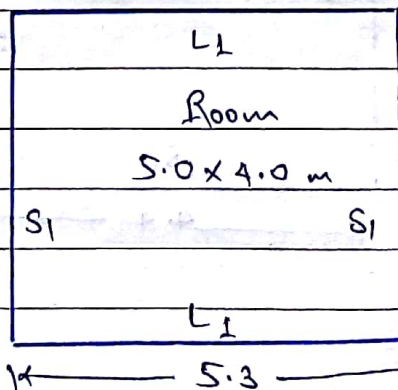 L1
Room
5.0 x 4.0 m
S1 S1
L1
5.3